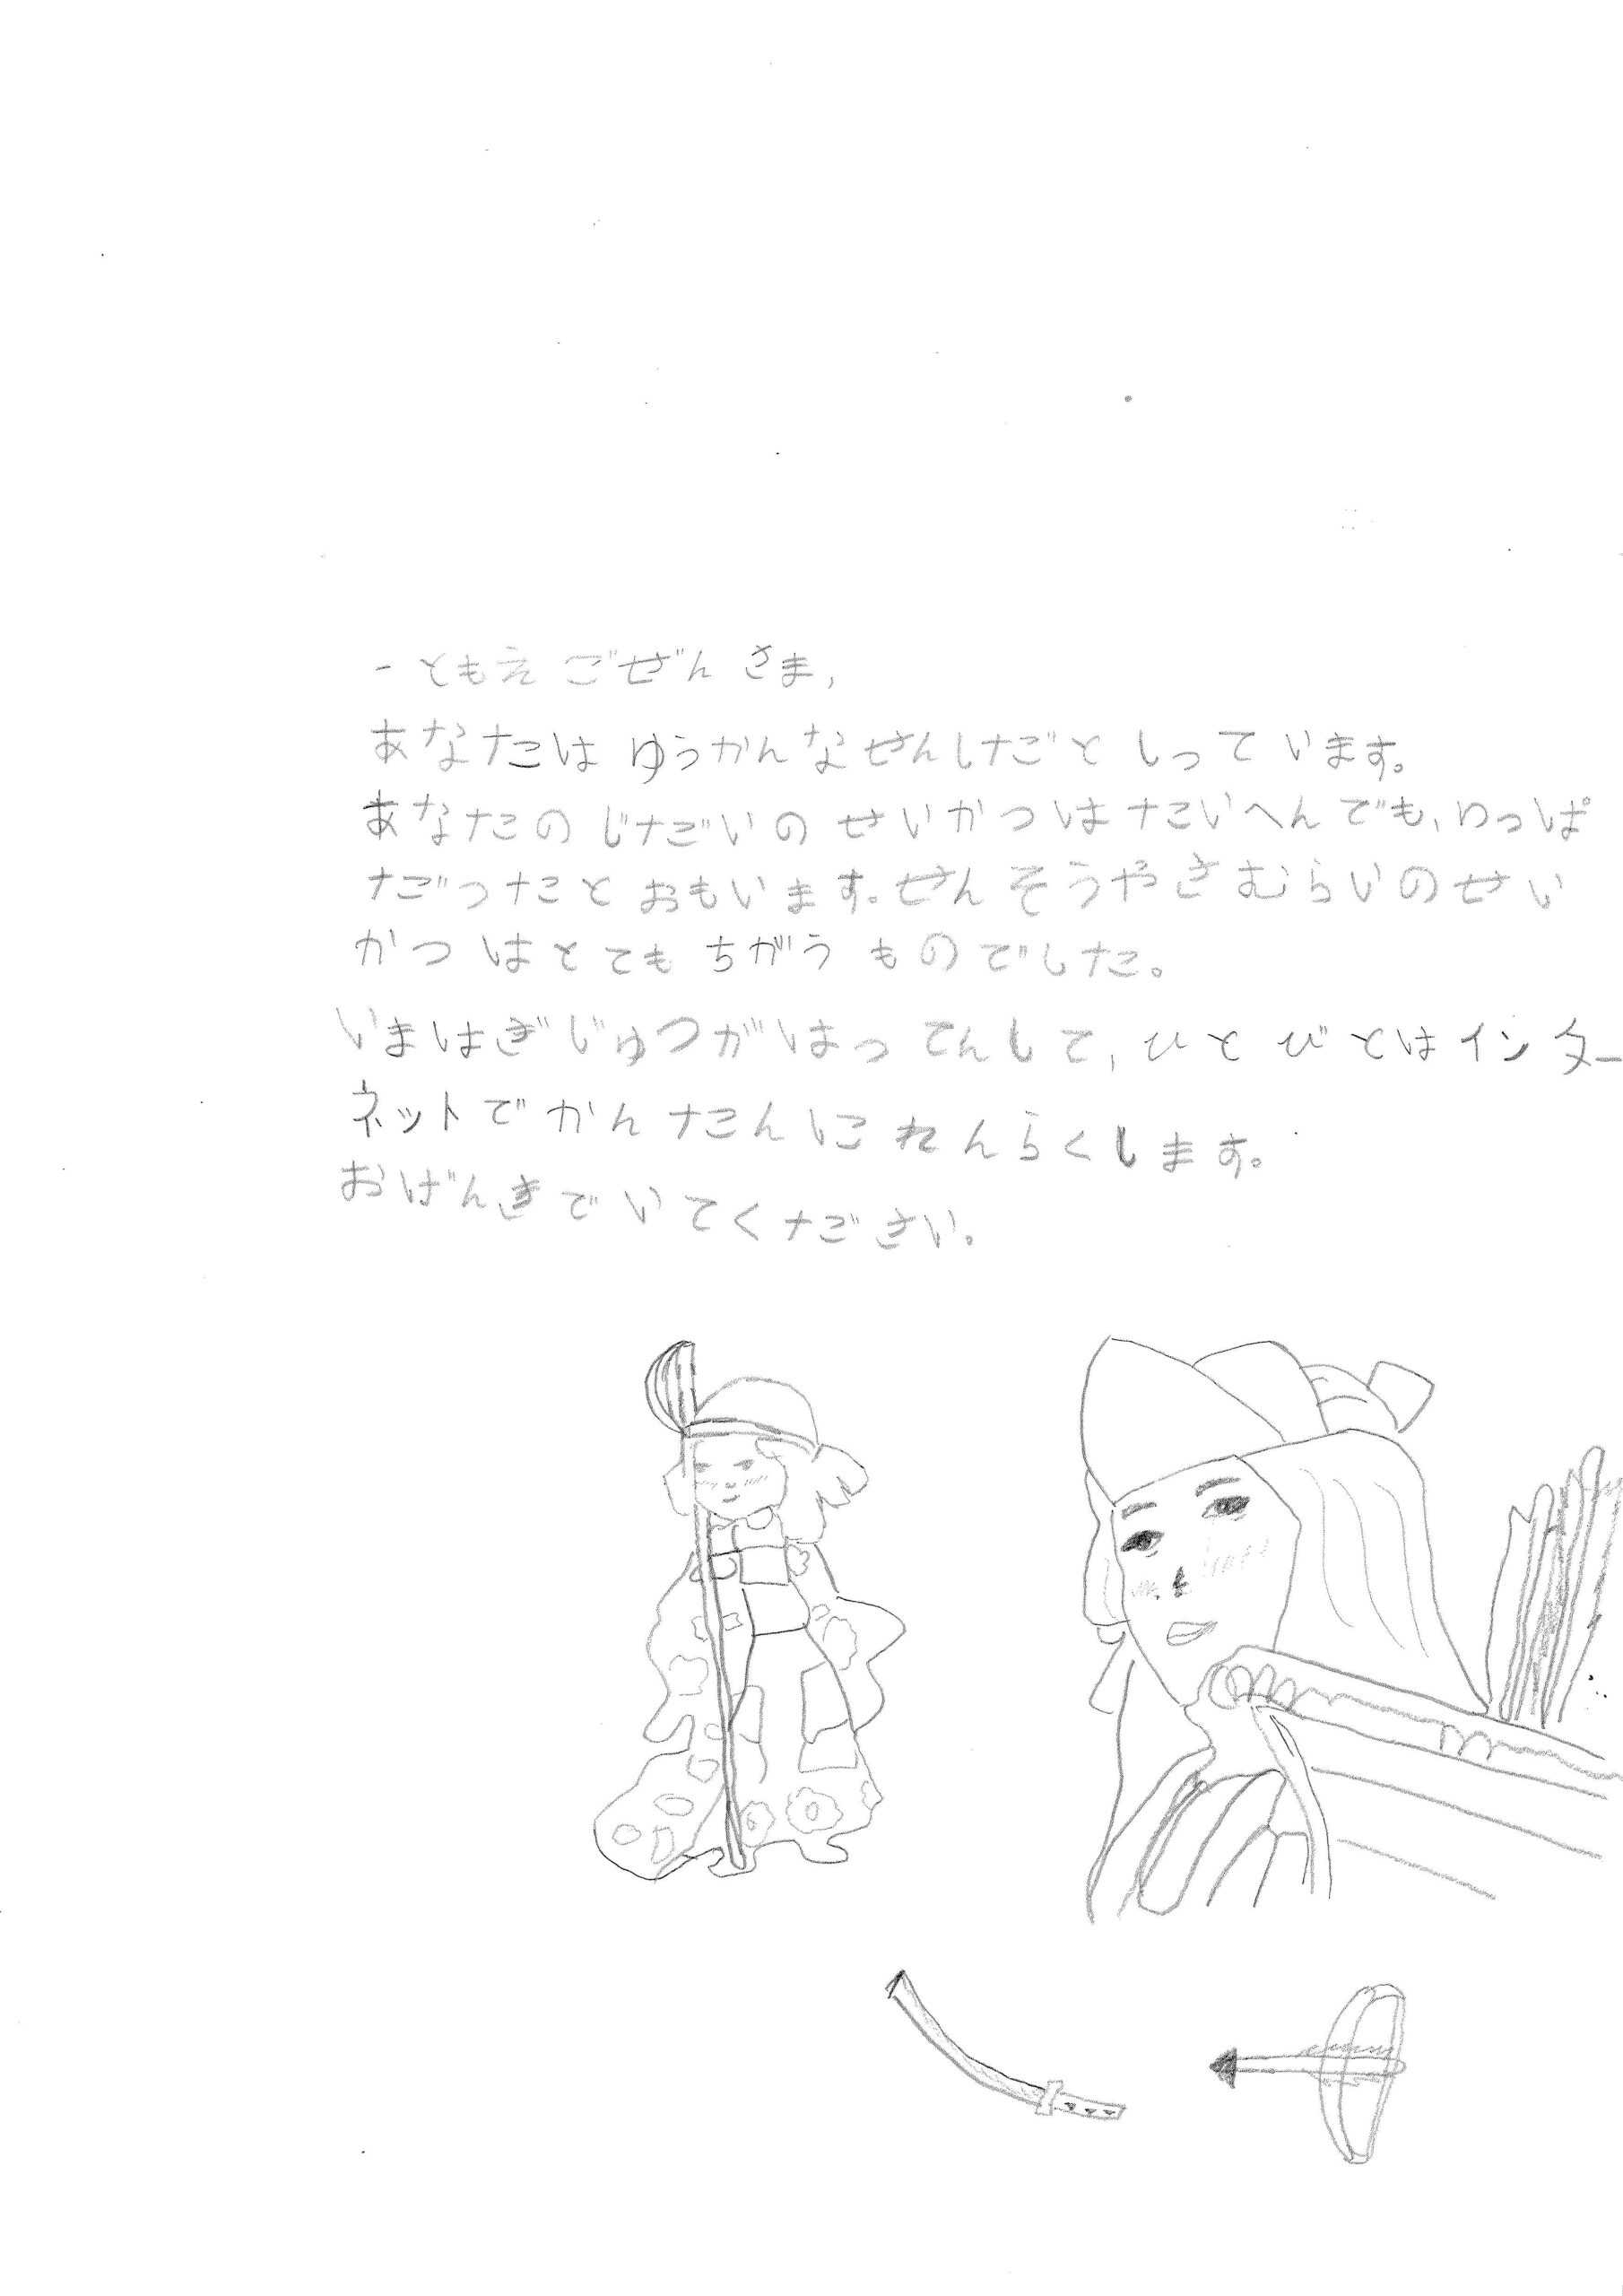 - ともえ ごぜん さま,
あなたは ゆうかんなせんしだと しっています。
あなたの じだいの せいかつは たいへんでも, りっぱ
だったと おもいます。せんそうやさむらいのせい
かつ はとても ちがう ものでした。
いまはぎじゅつがはってんして, ひとびとはインター
ネットで かんたんに れんらくします。
おげんきでいてください。